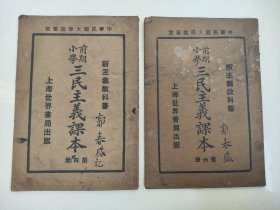 中華民國大學院審定
新主義教科書
前期小學
三民主義課本
第四冊
上海世界書局出版
中華民國大學院審定
新主義教科書
前期小學
三民主義課本
第六冊
上海世界書局出版